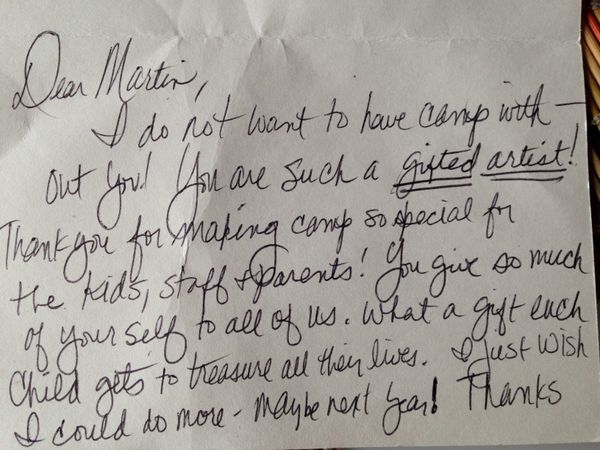 Dear Martin,
I do not want to have camp with-
out you! You are such a gifted artist!
Thank you for making camp so special for
the kids, staff + parents! You give so much
of your self to all of us. What a gift each
Child gets to treasure all their lives. I just wish
I could do more - Maybe next year! Thanks